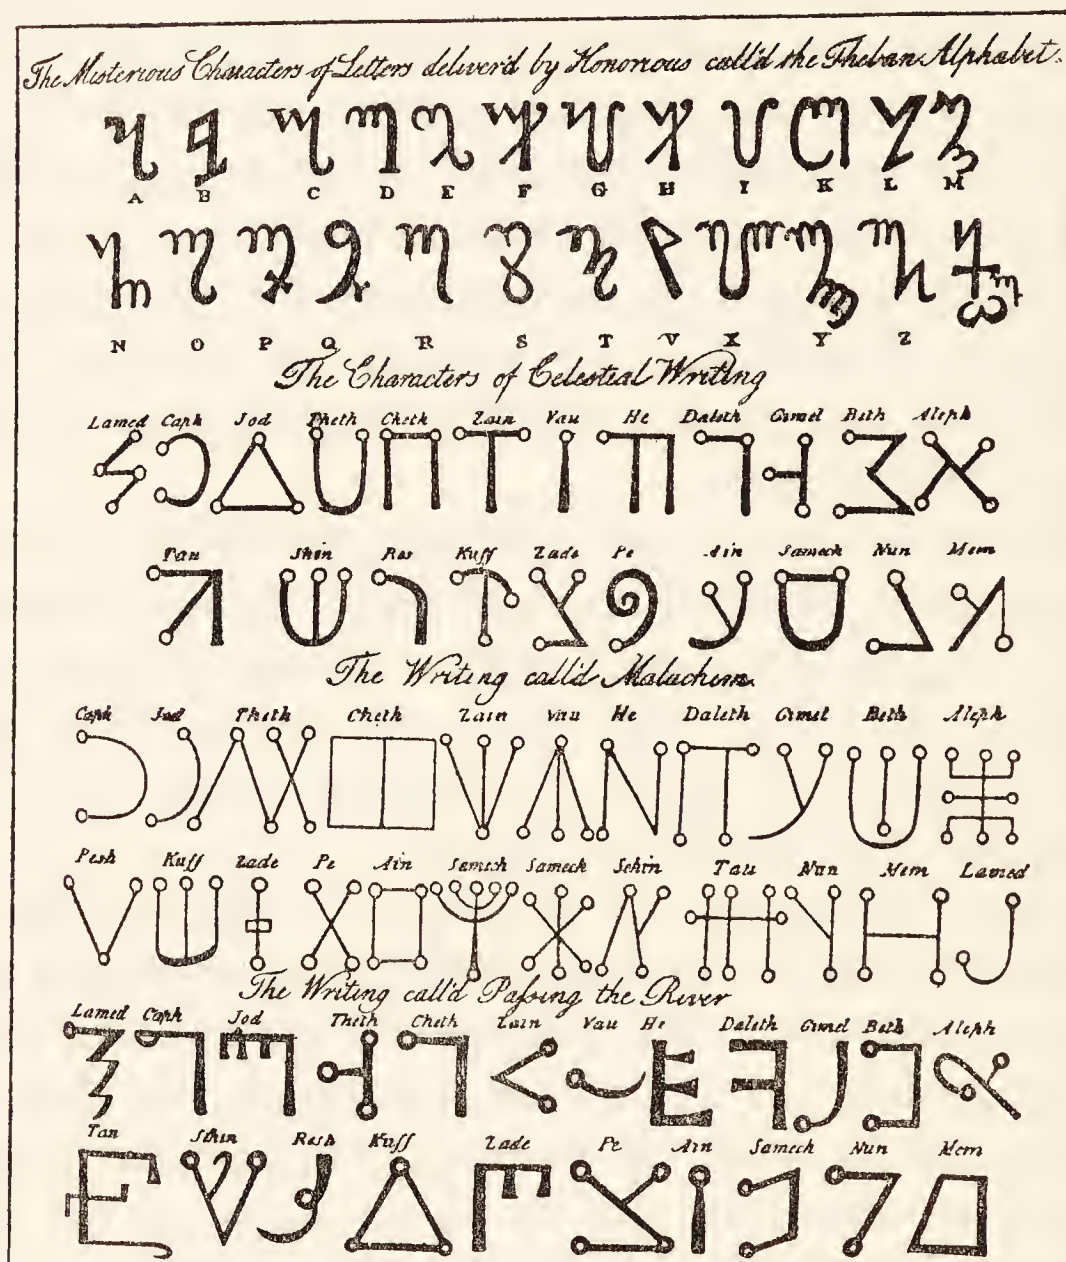 The Misterious Characters of Letters deliver'd by Honorious call'd the Theban Alphabet.
A B C D E F G H I K L M
N O P Q R S T V X Y Z
The Characters of Celestial Writing
Lamed Caph Jod Theth Cheth Zain Vau He Daleth Gimel Beth Aleph
Tau Shin Res Kuff Zade Pe Ain Samech Nun Mem
The Writing call'd Malachim
Caph Jod Theth Cheth Zain Vau He Daleth Gimel Beth Aleph
Resh Kuff Zade Pe Ain Samech Samech Schin Tau Nun Mem Lamed
The Writing call'd Passing the River
Lamed Caph Jod Theth Cheth Zain Vau He Daleth Gimel Beth Aleph
Tau Schin Resh Kuff Zade Pe Ain Samech Nun Mem